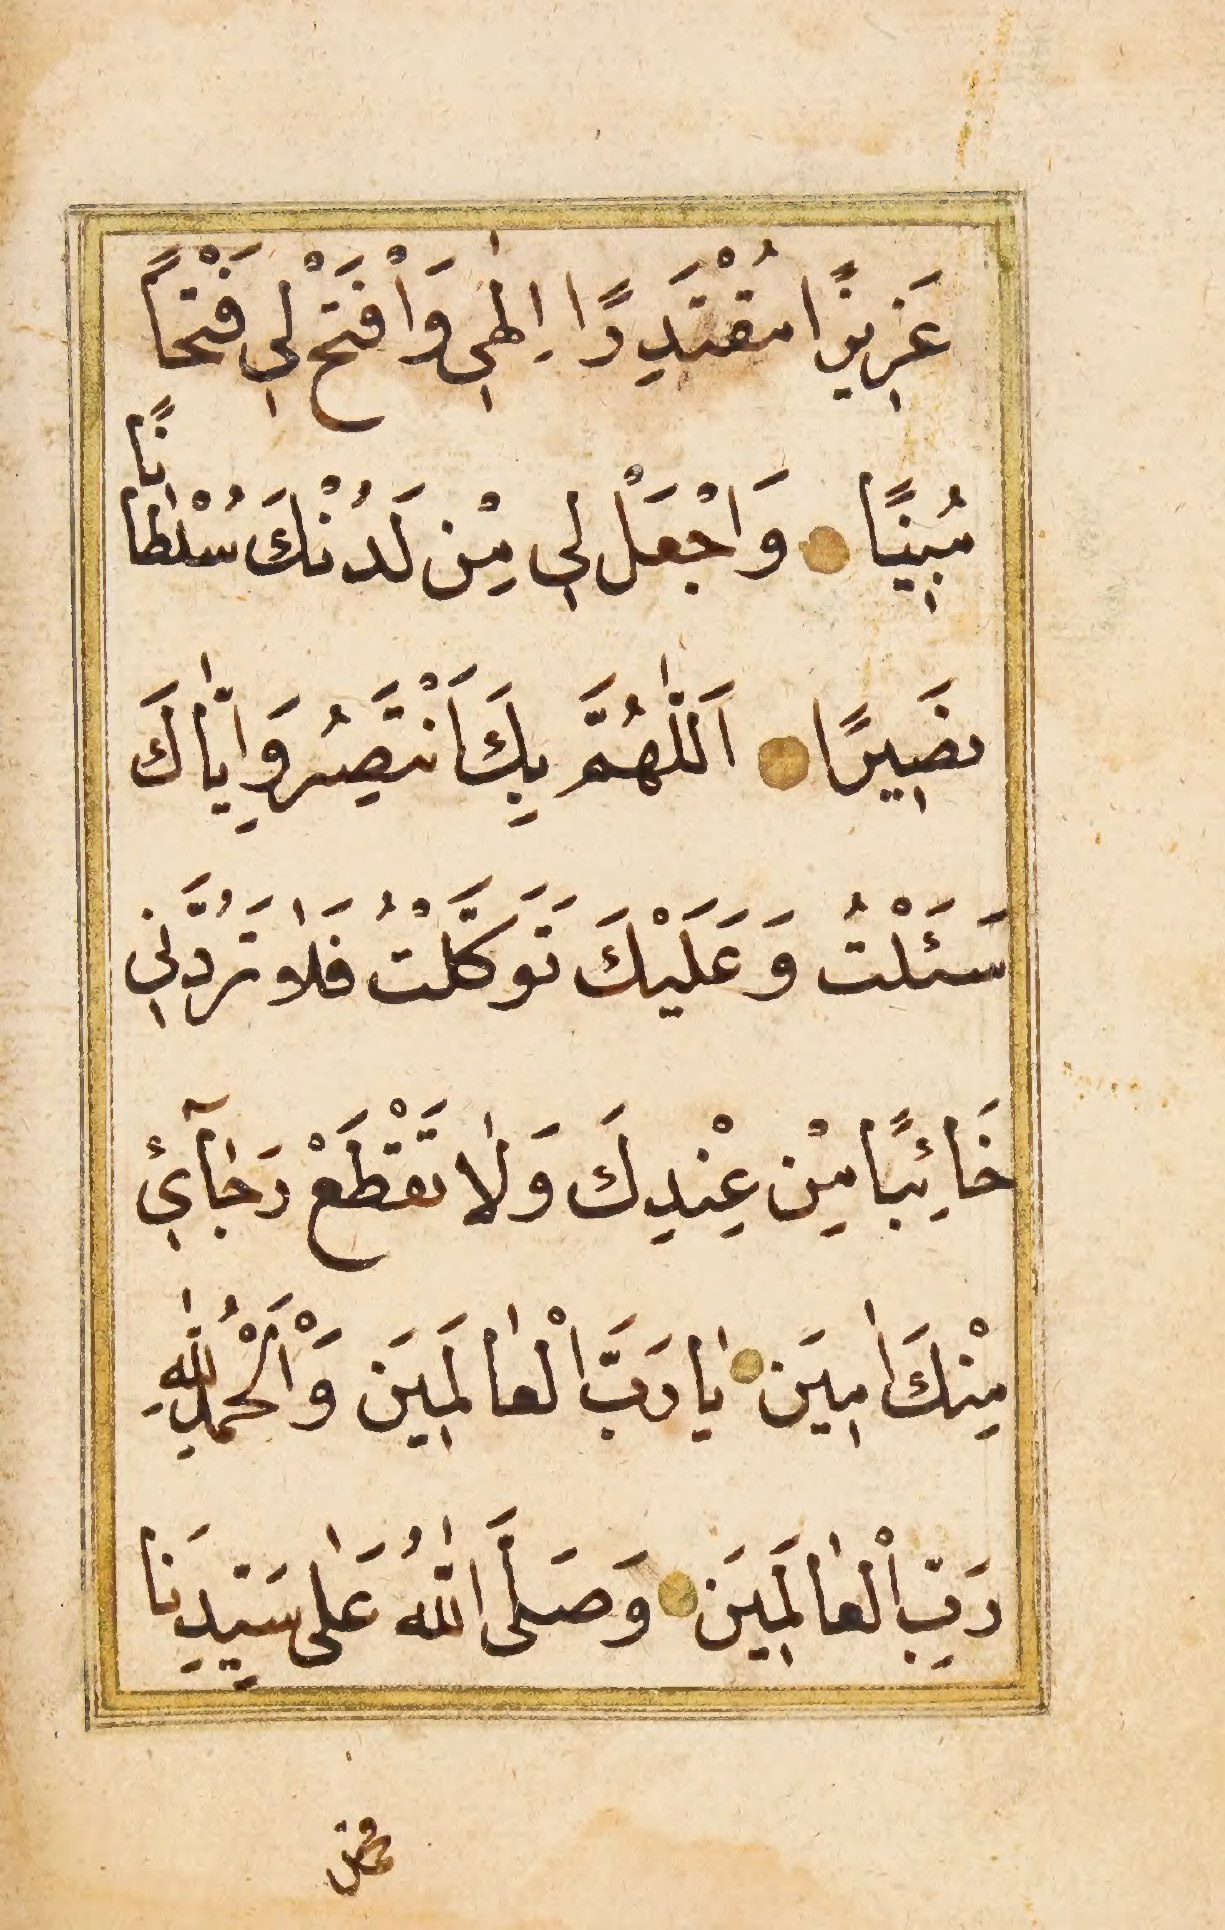 عَزِيزًا مُقْتَدِرًا اِلٰهِي وَاْفْتَحْ لِي فَتْحًا
مُبِينًا وَاجْعَلْ لِي مِنْ لَدُنْكَ سُلْطَانًا
نَصِيرًا اَللّٰهُمَّ بِكَ اَنْتَصِرُ وَاِيَّاكَ
سَئَلْتُ وَعَلَيْكَ تَوَكَّلْتُ فَلَا تَرُدَّنِي
خَائِبًا مِنْ عِنْدِكَ وَلَا تَقْطَعْ رَجَآئِي
مِنْكَ اٰمِينَ يَا رَبَّ الْعَالَمِينَ وَالْحَمْدُ لِلّٰهِ
رَبِّ الْعَالَمِينَ وَصَلَّى اللّٰهُ عَلٰى سَيِّدِنَا